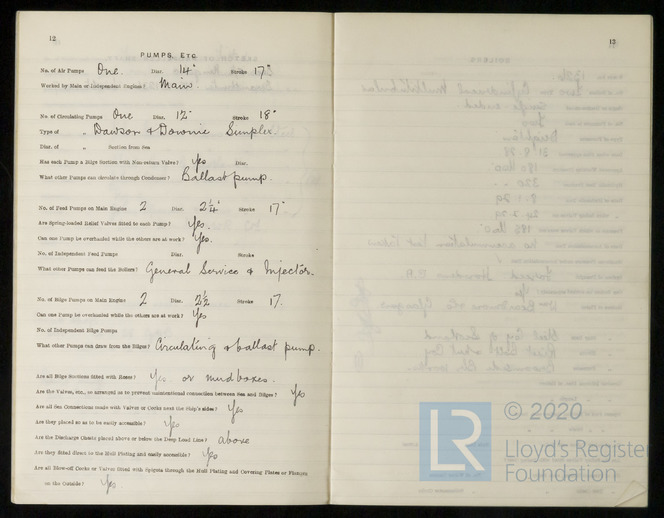 12
PUMPS, ETC
No. of Air Pumps One. Diar. 14" Stroke 17"
Worked by Main or Independent Engines? Main.
No. of Circulating Pumps One Diar. 12" Stroke 18"
Type of " Dawson & Downie Simplex.
Diar. of " Suction from Sea
Has each Pump a Bilge Suction with Non-return Valve? Yes Diar.
What other Pumps can circulate through Condenser? Ballast pump.
No. of Feed Pumps on Main Engine 2 Diar. 2¼" Stroke 17"
Are Spring-loaded Relief Valves fitted to each Pump? Yes.
Can one Pump be overhauled while the others are at work? Yes.
No. of Independent Feed Pumps Diar. Stroke
What other Pumps can feed the Boilers? General Service & Injector.
No. of Bilge Pumps on Main Engine 2 Diar. 2½ Stroke 17.
Can one Pump be overhauled while the others are at work? Yes
No. of Independent Bilge Pumps
What other Pumps can draw from the Bilges? Circulating & ballast pump.
Are all Bilge Suctions fitted with Roses? Yes or mud boxes.
Are the Valves, &c., so arranged as to prevent unintentional connection between Sea and Bilges? Yes
Are all Sea Connections made with Valves or Cocks next the ship's sides? Yes
Are they placed so as to be easily accessible? Yes
Are the Discharge Chests placed above or below the Deep Load Line? above
Are they fitted direct to the Hull Plating and easily accessible? Yes
Are all Blow-off Cocks or Valves fitted with Spigots through the Hull Plating and Covering Plates or Flanges
on the Outside? Yes.
13
© 2020
LR
Lloyd's Register
Foundation